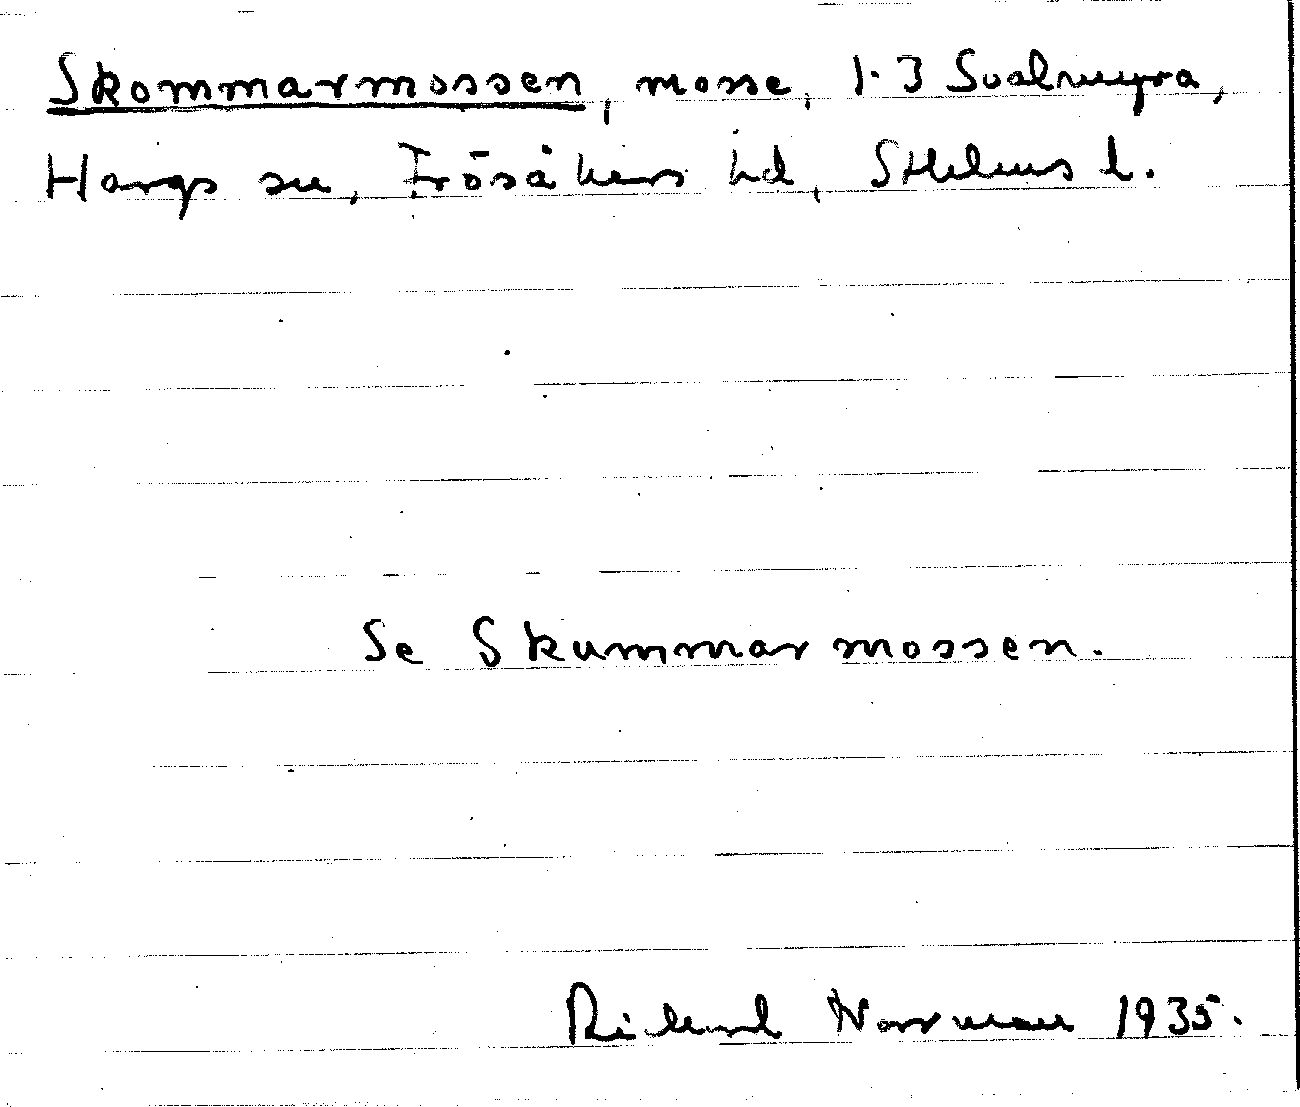 Skommarmossen, mosse, 1-3 Svalmyra,
Hargs sn, Frösåkers hd, Sthlms l.
Se Skummarmossen.
Richard Norrman 1935.